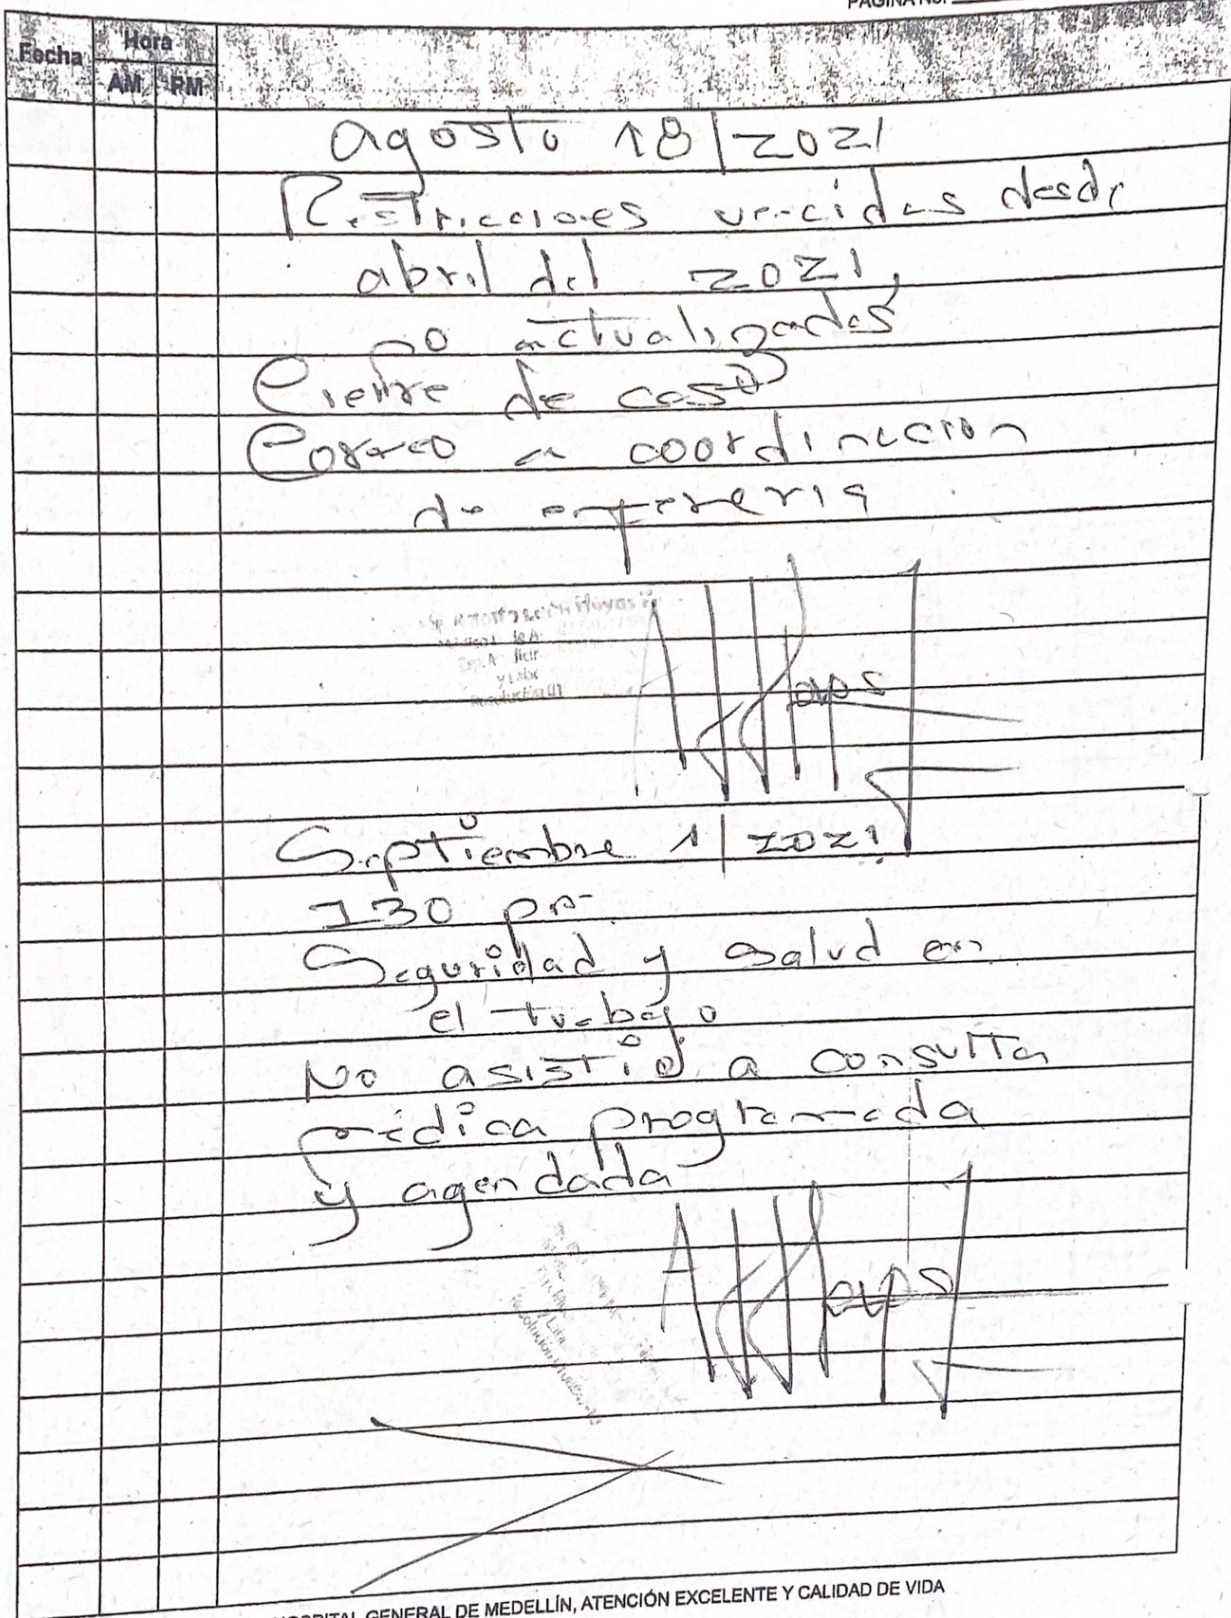 PÁGINA No.
Fecha
Hora
AM PM
agosto 18/2021
Restricciones vencidas desde
abril del 2021,
no actualizadas
Cierre de caso
Correo a coordinacion
de enfermeria
Septiembre 1/2021
130 pm.
Seguridad y Salud en
el trabajo
No asistió a consulta
médica programada
y agendada
HOSPITAL GENERAL DE MEDELLÍN, ATENCIÓN EXCELENTE Y CALIDAD DE VIDA